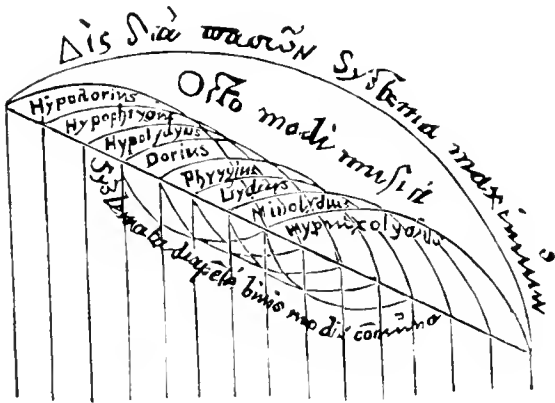 Δὶς διὰ πασῶν Systema maximum
Octo modi musici
Hypodorius
Hypophrygius
Hypolydius
Dorius
Phrygius
Lydius
Mixolydius
Hypmixolydius
Systemata diapēte binis modis cōmuna